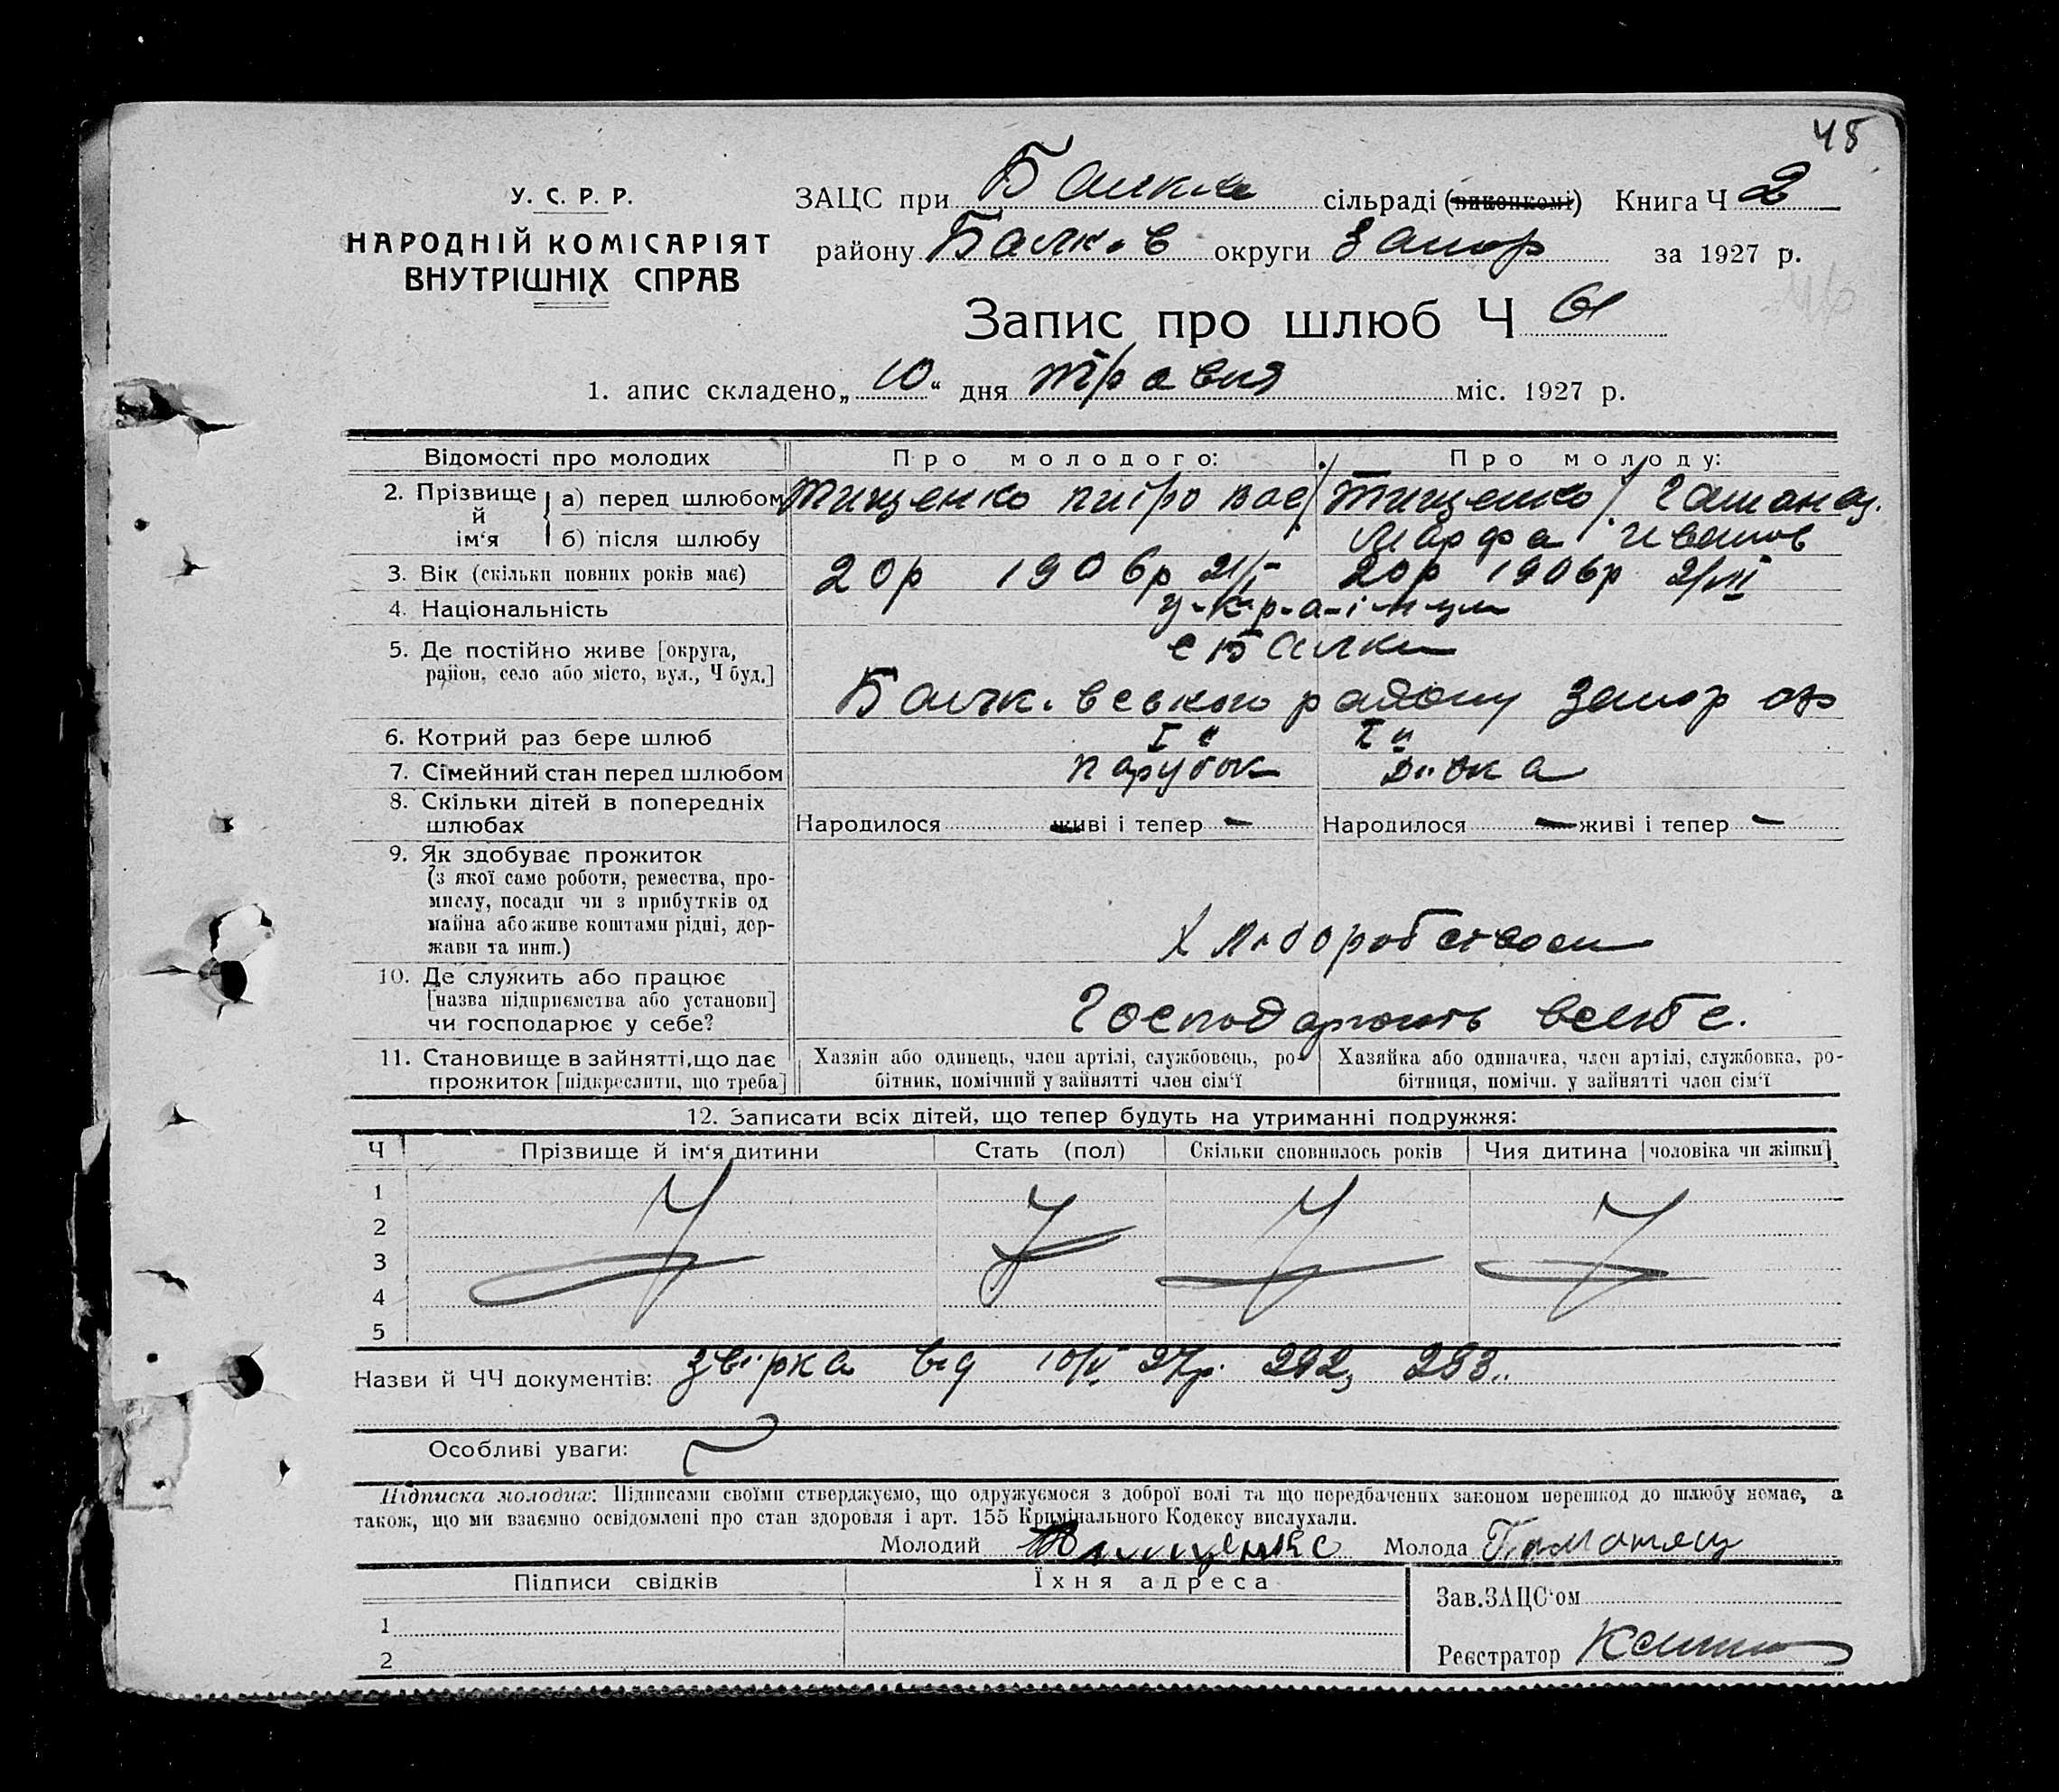 48
У. С. Р. Р.
НАРОДНІЙ КОМІСАРІЯТ
ВНУТРІШНІХ СПРАВ
ЗАЦС при Балкив сільраді (виконкомі) Книга Ч 2
району Балків округи Запор за 1927 р.
Запис про шлюб Ч
1. апис складено „10“ дня травня міс. 1927 р.
Відомості про молодих
Про молодого:
Про молоду:
2. Прізвище й ім‘я
а) перед шлюбом
б) після шлюбу
Тищенко Питро Вас
Тищенко / Гаманец.
Марфа Иванов
3. Вік (скільки повних років має)
20р 1906р 20р 1906р
4. Національність
у-к-р-а-ї-нци
5. Де постійно живе [округа,
район, село або місто, вул., Ч буд.]
с Балки
Балківського району Запор окр
6. Котрий раз бере шлюб
I й I й
7. Сімейний стан перед шлюбом
парубок дівка
8. Скільки дітей в попередніх
шлюбах
Народилося живі і тепер — Народилося — живі і тепер —
9. Як здобуває прожиток
(з якої саме роботи, ремества, про-
мислу, посади чи з прибутків од
майна або живе коштами рідні, дер-
жави та инш.)
Хліборобством
10. Де служить або працює
[назва підприємства або установи]
чи господарює у себе?
Господарюють всебе.
11. Становище в зайнятті, що дає
прожиток [підкреслити, що треба]
Хазяїн або одинець, член артілі, службовець, ро-
бітник, помічний у зайнятті член сім‘ї
Хазяйка або одиначка, член артілі, службовка, ро-
бітниця, помічн. у зайнятті член сім‘ї
12. Записати всіх дітей, що тепер будуть на утриманні подружжя:
Ч Прізвище й ім‘я дитини Стать (пол) Скільки сповнилось років Чия дитина [чоловіка чи жінки]
1
2
3
4
5
Назви й ЧЧ документів: звірка від 10/V 27р. 292, 293..
Особливі уваги:
Підписка молодих: Підписами своїми стверджуємо, що одружуємося з доброї волі та що передбачених законом перешкод до шлюбу немає, а
також, що ми взаємно освідомлені про стан здоровля і арт. 155 Кримінального Кодексу вислухали.
Молодий Тищенко Молода Гаманец
Підписи свідків
Їхня адреса
Зав. ЗАЦС‘ом
1
2
Реєстратор